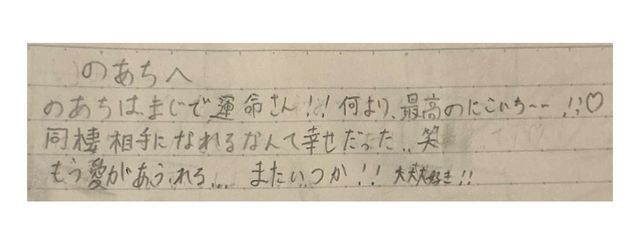 のあちへ
のあちは、まじで運命さん!! 何より、最高のにこいち〜〜!!♡
同棲相手になれるなんて幸せだった..笑
もう愛があふれる... またいつか!! 大大大好き!!